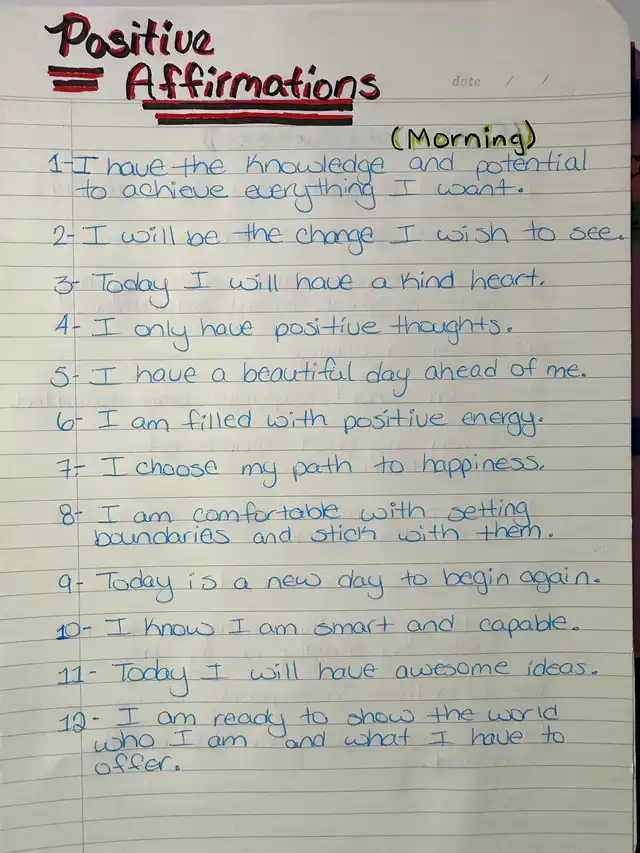 Positive
Affirmations
date / /
(Morning)
1- I have the knowledge and potential
to achieve everything I want.
2- I will be the change I wish to see.
3- Today I will have a kind heart.
4- I only have positive thoughts.
5- I have a beautiful day ahead of me.
6- I am filled with positive energy.
7- I choose my path to happiness.
8- I am comfortable with setting
boundaries and stick with them.
9- Today is a new day to begin again.
10- I know I am smart and capable.
11- Today I will have awesome ideas.
12- I am ready to show the world
who I am and what I have to
offer.